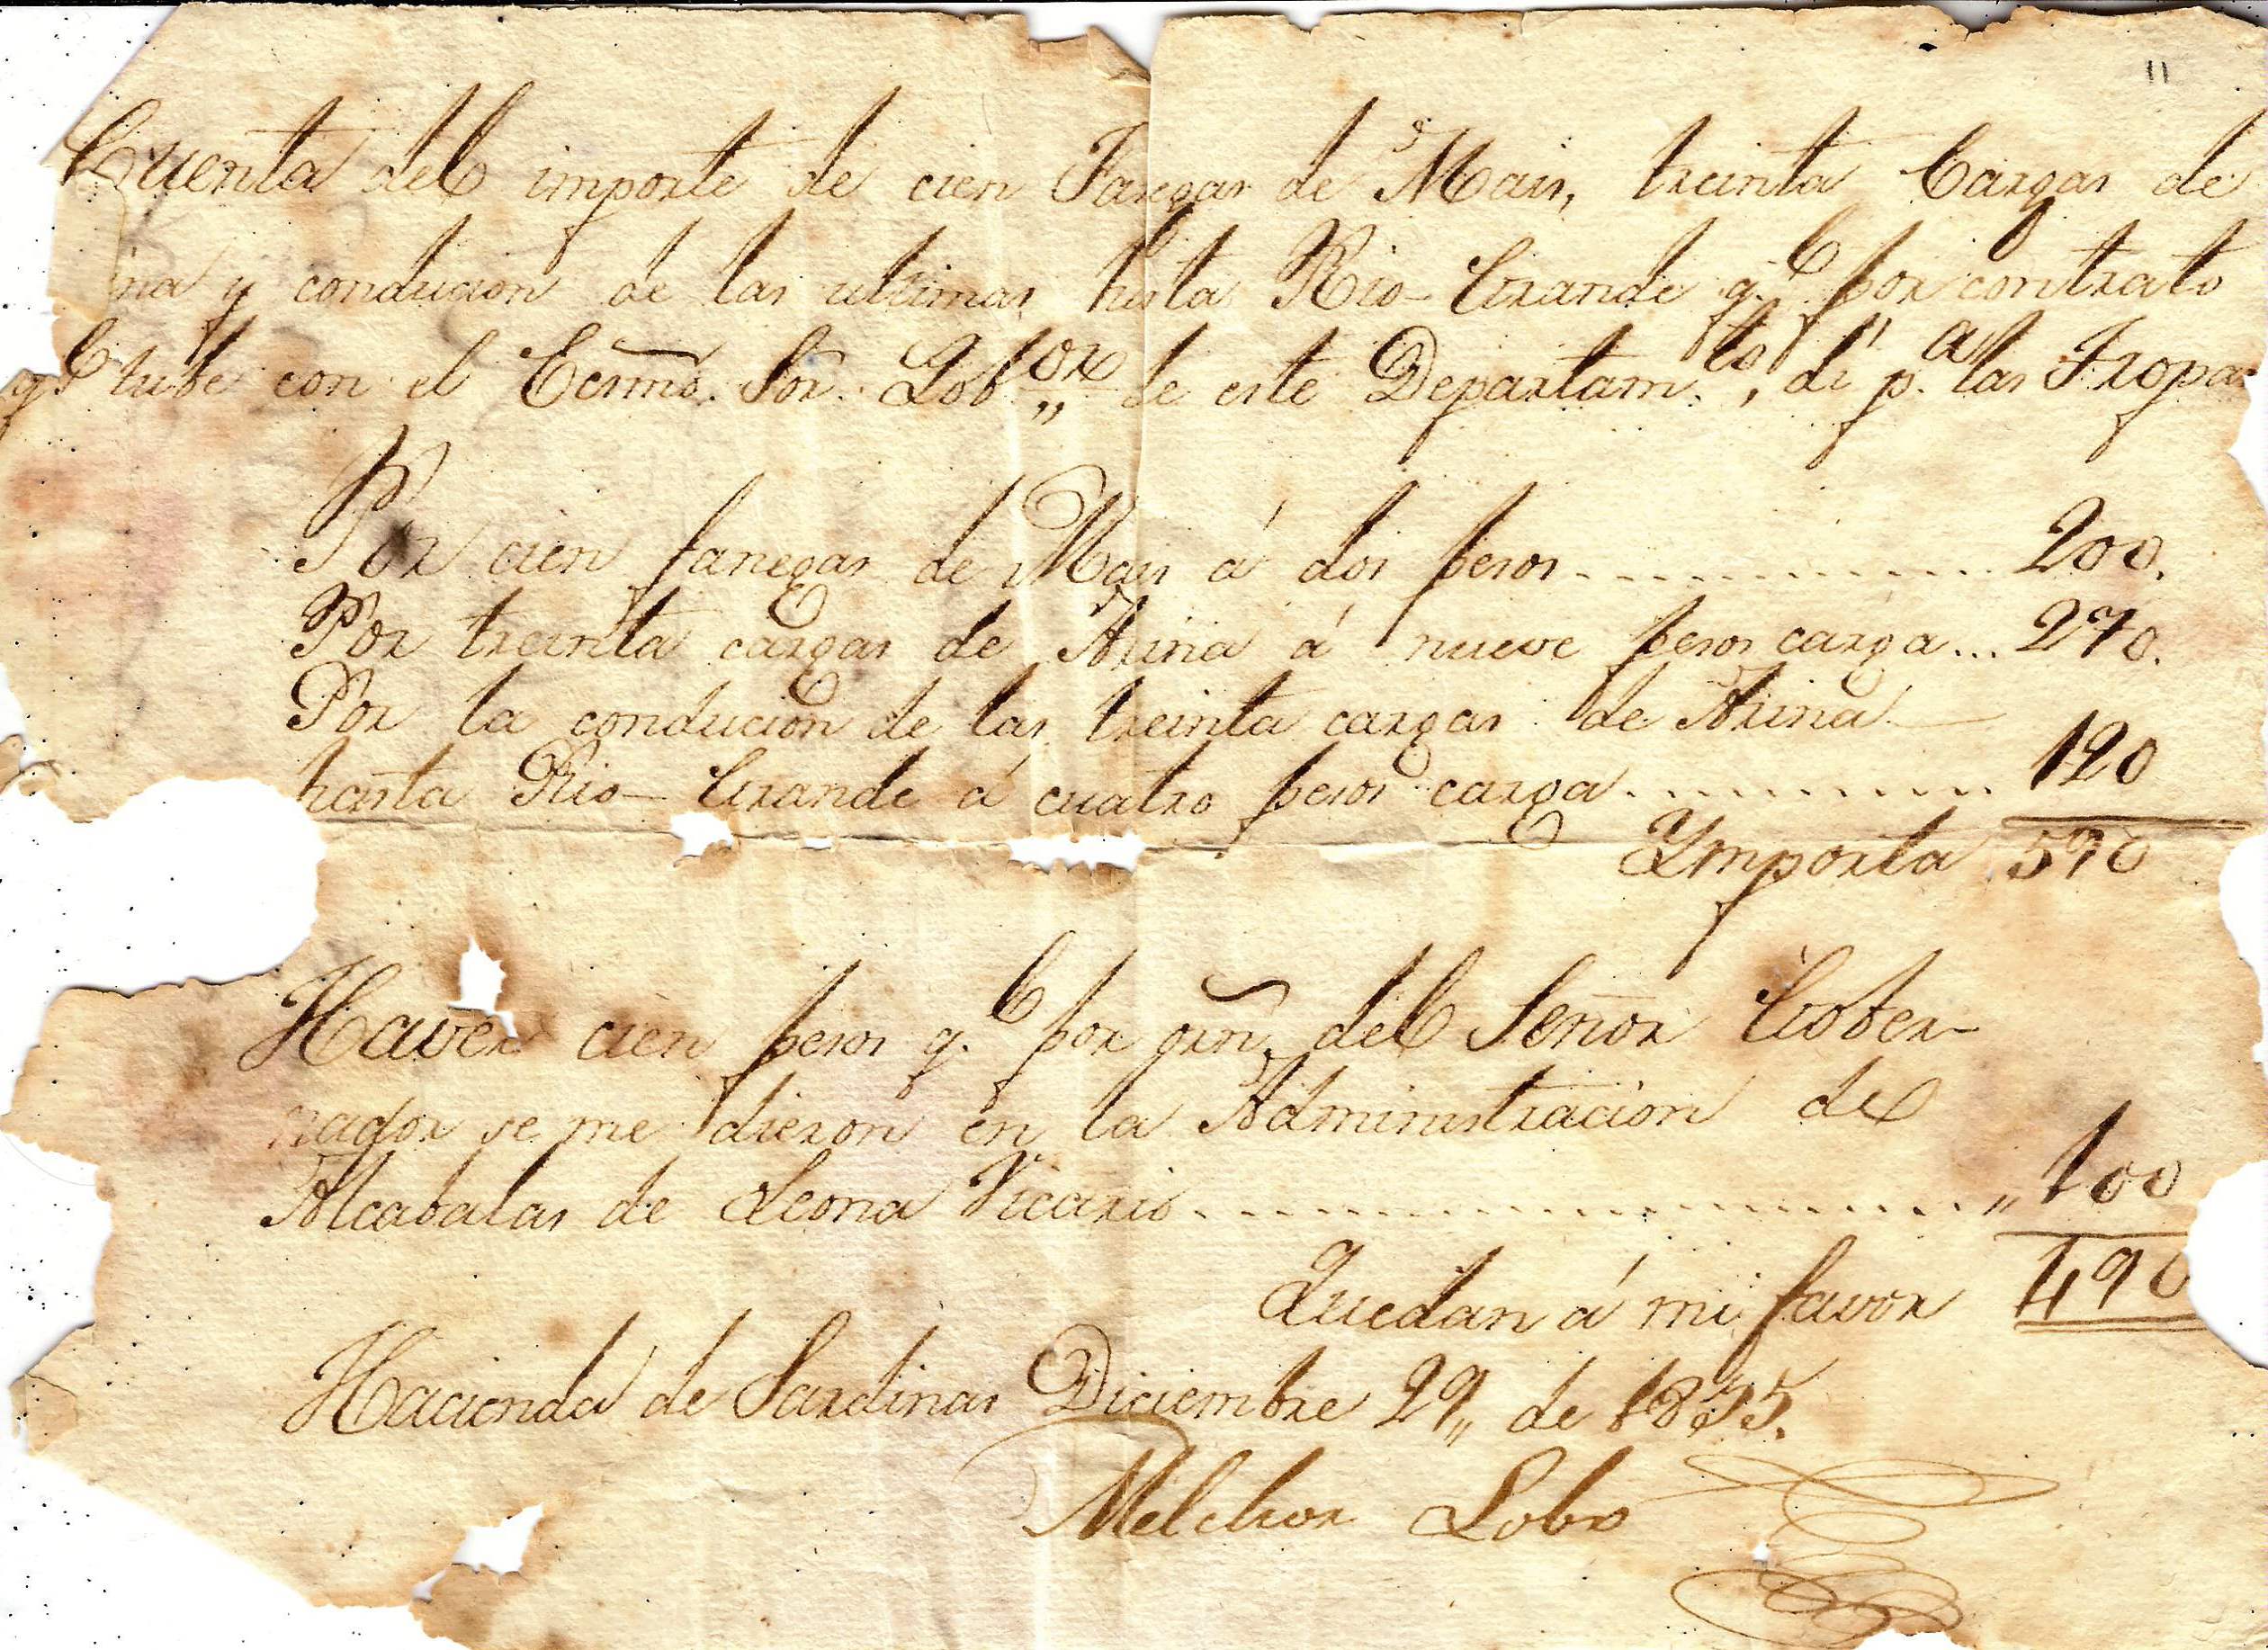 11
Cuenta del importe de cien Fanegas de Mais, treinta Cargas de
ina y condución de las ultimas hasta Rio-Grande q.e por contrato
q.e tube con el Ecsmo. Sor. Gob.or de este Departam.to, di p.a las Tropas
Por cien fanegas de Mais á dos pesos ............ 200.
Por treinta cargas de Arina á nueve pesos carga... 270.
Por la condución de las treinta cargas de Arina
hasta Rio-Grande á cuatro pesos carga............ 120
Ymporta 590
Haver cien pesos q.e por orn. del Señor Gober-
nador se me dieron en la Administración de
Alcabalas de Leona Vicario............ „100
Quedan á mi favor 490
Hacienda de Sardinas Diciembre 29„ de 1835.
Melchor Lobo